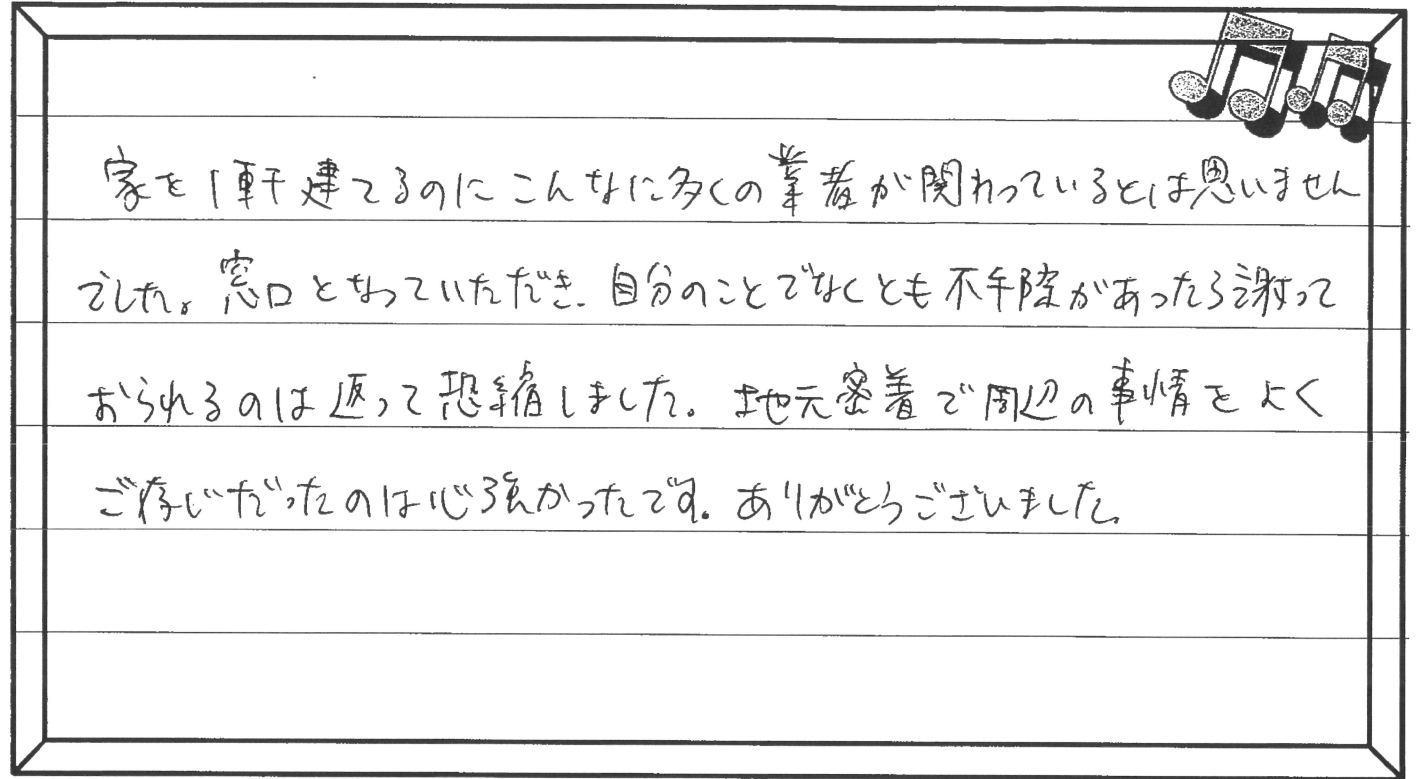 家を1軒建てるのにこんなに多くの業者が関わっているとは思いません
でした。窓口となっていただき、自分のことでなくとも不手際があったら謝って
おられるのは返って恐縮しました。地元密着で周辺の事情をよく
ご存じだったのは心強かったです。ありがとうございました。